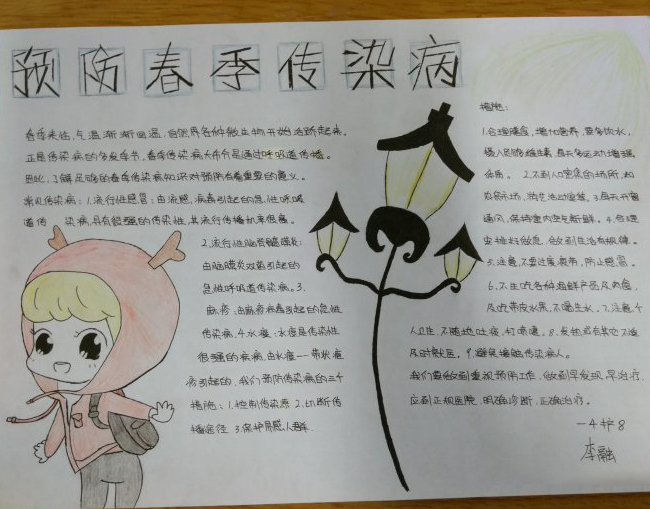 预防春季传染病
春季来临,气温渐渐回温,自然界各种微生物开始活跃起来,
正是传染病的多发季节,春季传染病大部分是通过呼吸道传播。
因此,了解足够的春季传染病知识对预防有着重要的意义。
常见传染病:1.流行性感冒:由流感病毒引起的急性呼吸
道传 染病,具有很强的传染性,其流行传播机率很高。
2.流行性脑脊髓膜炎:
由脑膜炎双菌引起的
急性呼吸道传染病。3.
麻疹:由麻疹病毒引起的急性
传染病。4.水痘:水痘是传染性
很强的疾病,由水痘一带状疱
疹引起的,我们预防传染病的三个
措施:1.控制传染源 2.切断传
播途径 3.保护易感人群.
措施:
1.合理膳食,增加营养,要多饮水,
摄入足够维生素,每天多运动增强
体质。2.不到人密集的场所,如
农贸市场,游乐活动室等。3.每天开窗
通风,保持室内空气新鲜。4.合理
安排好做息,做到生活有规律。
5.注意,不要过度疲劳,防止感冒。
6.不生吃各种鱼鲜产品及肉食,
及吃带皮水果,不喝生水。7.注意个
人卫生,不随地吐痰,打喷嚏。8.发热或有其它不适
及时就医。9.避免接触传染病人。
我们要做到重视预防工作,做到早发现,早治疗.
应到正规医院,明确诊断,正确治疗。
一4护8
李融